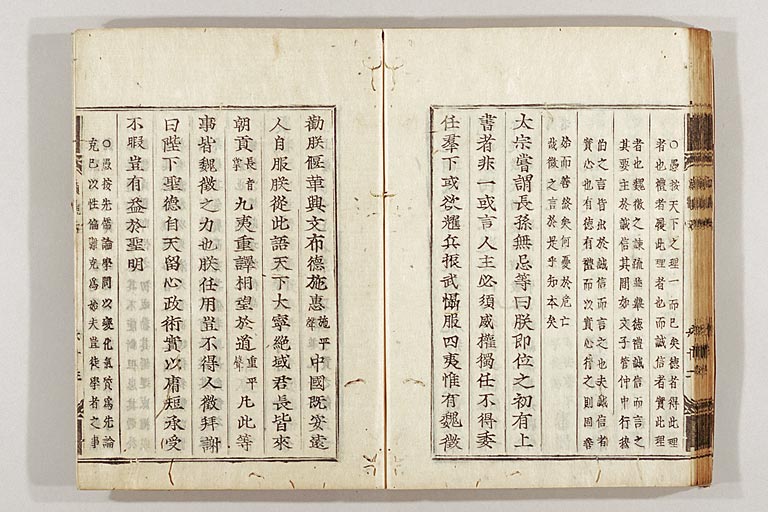 ○愚按天下之理一而已矣德者得此理
者也禮者履此理者也而誠信者實此理
者也魏徵之諫疏並擧德禮誠信而言之
其要主於誠信其間如文子管仲中行穆
伯之言皆出於誠信而言之也夫誠信者
實心也有德有禮而以實心行之則固善
始而善終矣何憂於危亡
哉徵之言於是乎知本矣
太宗嘗謂長孫無忌等曰朕即位之初有上
書者非一或言人主必須威權獨任不得委
任羣下或欲耀兵振武懾服四夷惟有魏徵
勸朕偃革興文布德施惠施平聲中國既安遠
人自服朕從此語天下大寧絶域君長皆來
朝貢長音掌九夷重譯相望於道重平聲凡此等
事皆魏徵之力也朕任用豈不得人徵拜謝
曰陛下聖德自天留心政術實以庸短承受
不暇豈有益於聖明
○愚按先儒論學問以變化氣質爲先論
克己以性偏難克爲始夫豈徒學者之事